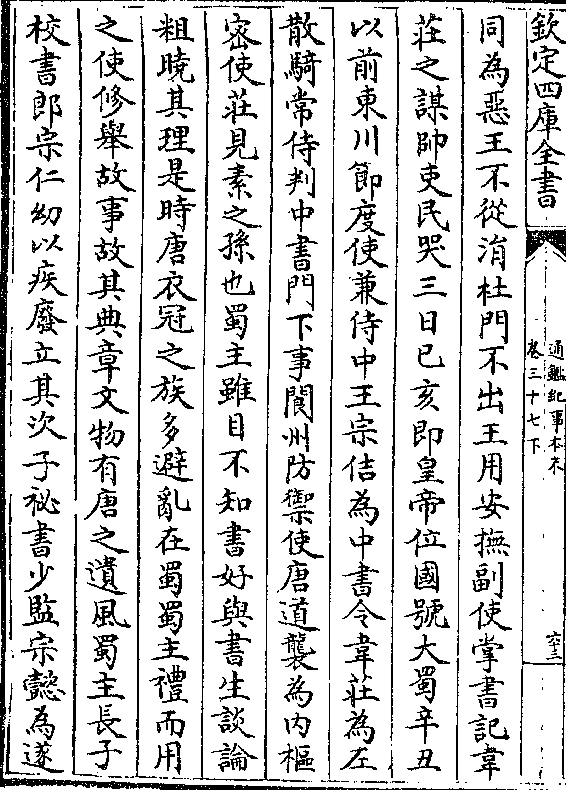 欽定四庫全書
通鑑紀事本末
卷三十七下
六三
同為惡王不從涓杜門不出王用安撫副使掌書記韋
莊之謀帥吏民哭三日己亥即皇帝位國號大蜀辛丑
以前東川節度使兼侍中王宗佶為中書令韋莊為左
散騎常侍判中書門下事閬州防禦使唐道襲為内樞
密使莊見素之孫也蜀主雖目不知書好與書生談論
粗曉其理是時唐衣冠之族多避亂在蜀蜀主禮而用
之使修舉故事故其典章文物有唐之遺風蜀主長子
校書郎宗仁幼以疾廢立其次子祕書少監宗懿為遂